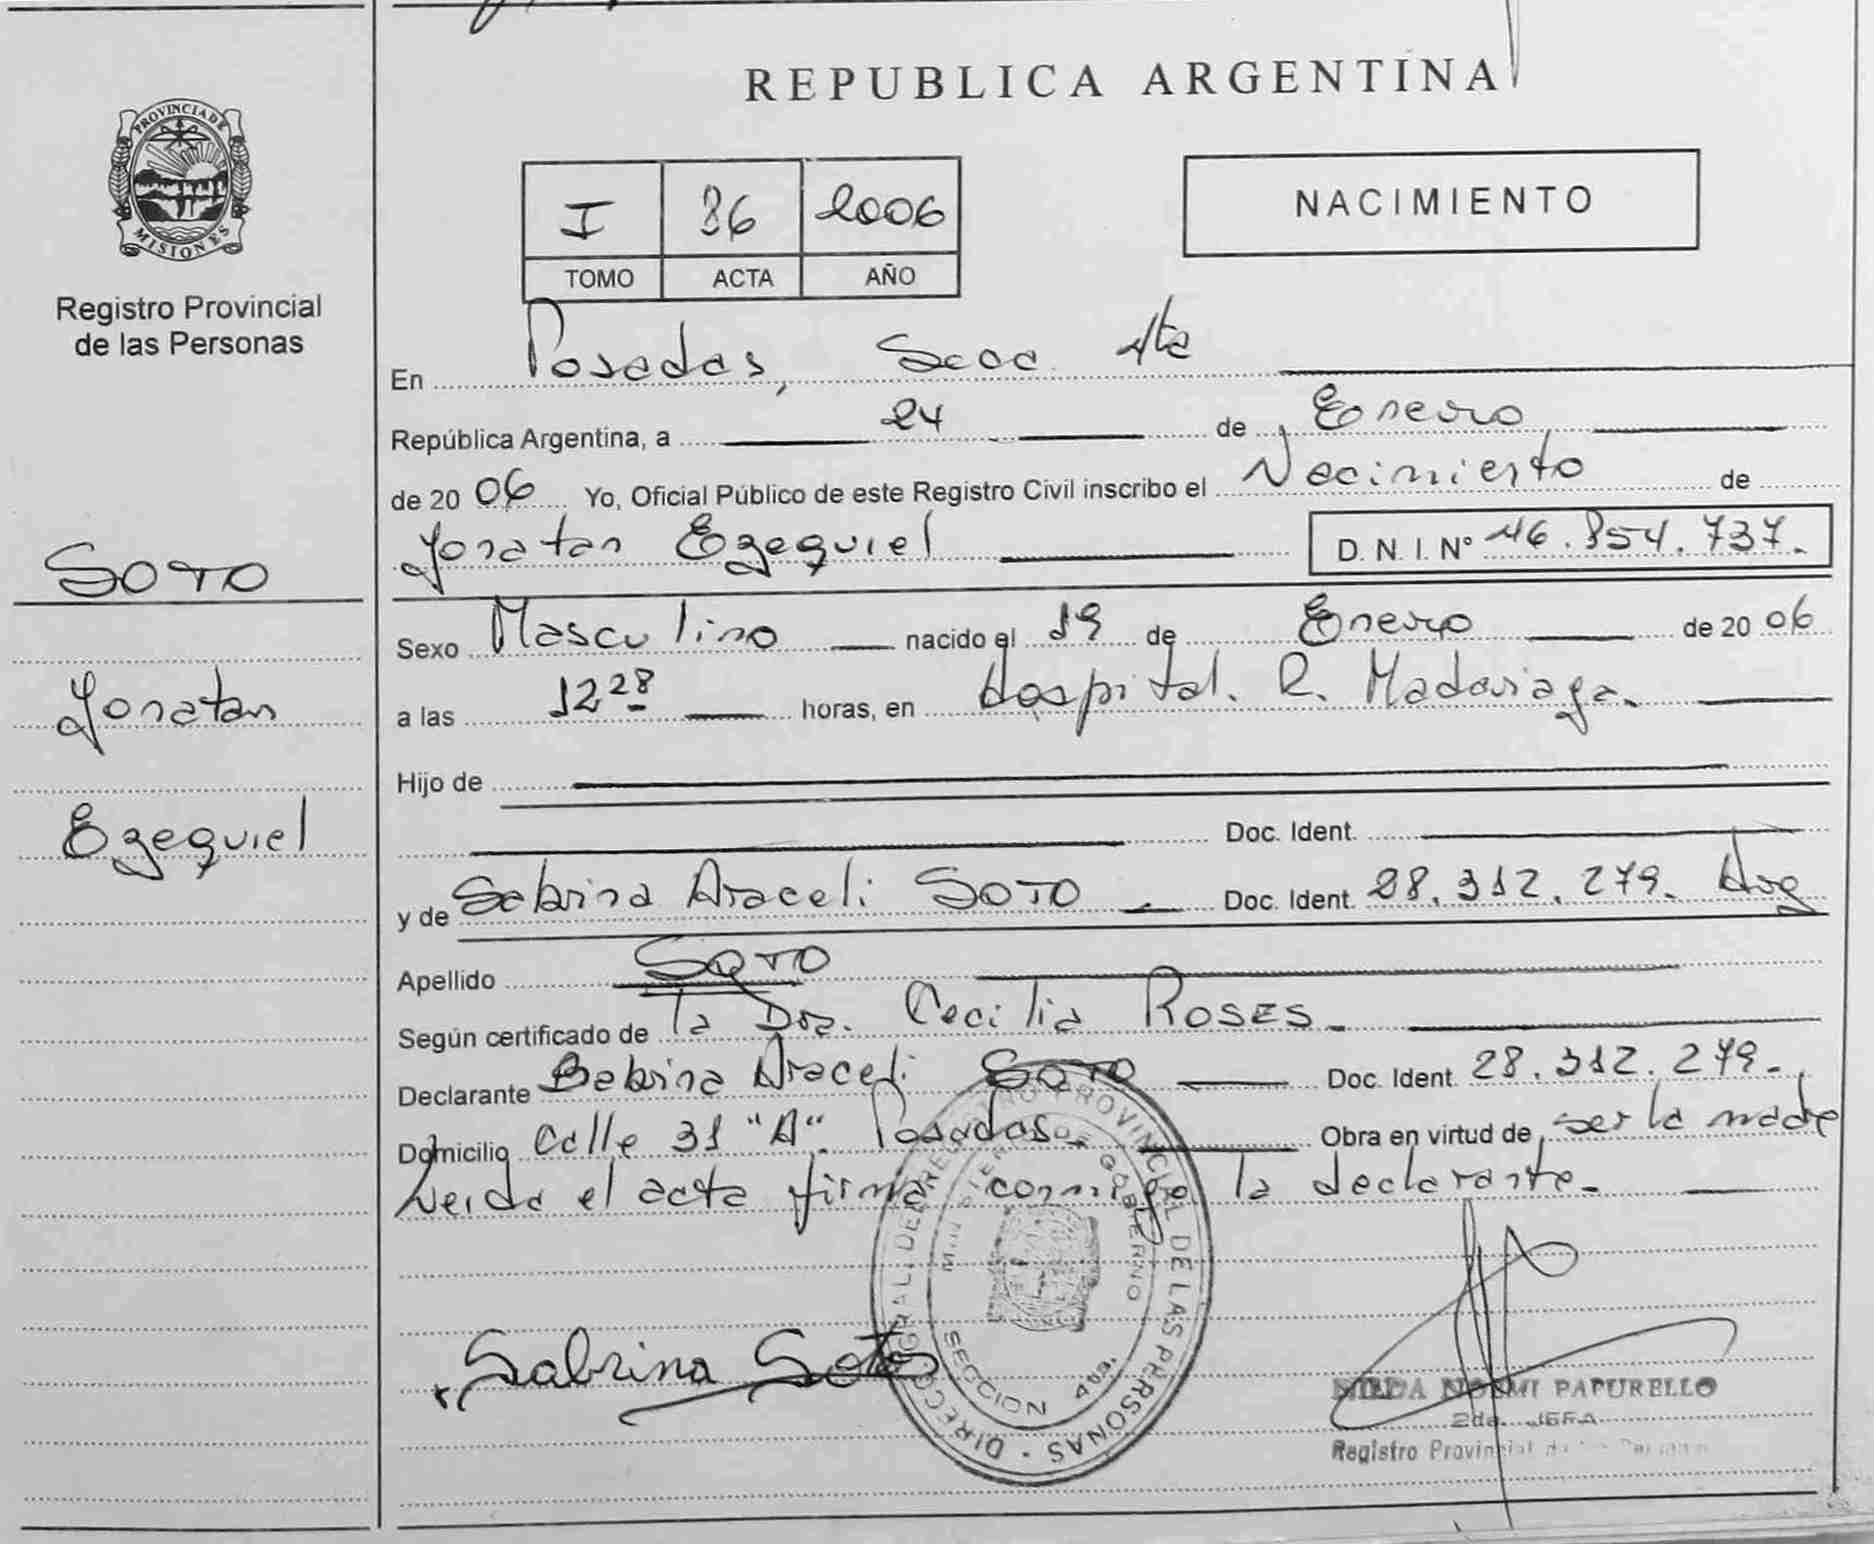 PROVINCIA DE
MISIONES
Registro Provincial
de las Personas
SOTO
Jonatan
Ezequiel
REPUBLICA ARGENTINA
I 86 2006
TOMO ACTA AÑO
NACIMIENTO
En Posadas, Secc. 4ta
República Argentina, a 24 de Enero
de 20 06 Yo, Oficial Público de este Registro Civil inscribo el Nacimiento de
Jonatan Ezequiel D. N. I. N° 46.854.737.
Sexo Masculino nacido el 19 de Enero de 20 06
a las 12 28 horas, en Hospital. R. Madariaga.
Hijo de
Doc. Ident.
y de Sabrina Araceli SOTO Doc. Ident. 28.312.279. Arg
Apellido SOTO
Según certificado de la Dra. Cecilia ROSES.
Declarante Sabrina Araceli SOTO Doc. Ident. 28.312.279.
Domicilio Calle 31 "A". Posadas. Obra en virtud de ser la madre
Leida el acta firma conmigo la declarante.
Sabrina Soto
DIRECC. GRAL. DEL REGISTRO PROVINCIAL DE LAS PERSONAS
MINISTERIO DE GOBIERNO
SECCION 4ta.
NOEMI PAPURELLO
2da. JEFA
Registro Provincial de las Personas